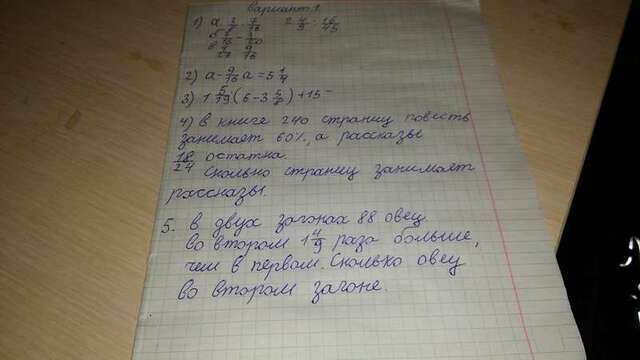 Вариант 1.
1) а 2/8 · 7/16 2 4/9 : 16/45
2) а - 9/16 а = 5 1/4
3) 1 5/19 (6 - 3 5/6) + 15
4) В книге 240 страниц повесть
занимает 60%, а рассказы
18/24 остатка.
Сколько страниц занимает
рассказы.
5. В двух загонах 88 овец.
Во втором 1 4/9 раза больше,
чем в первом. Сколько овец
во втором загоне.